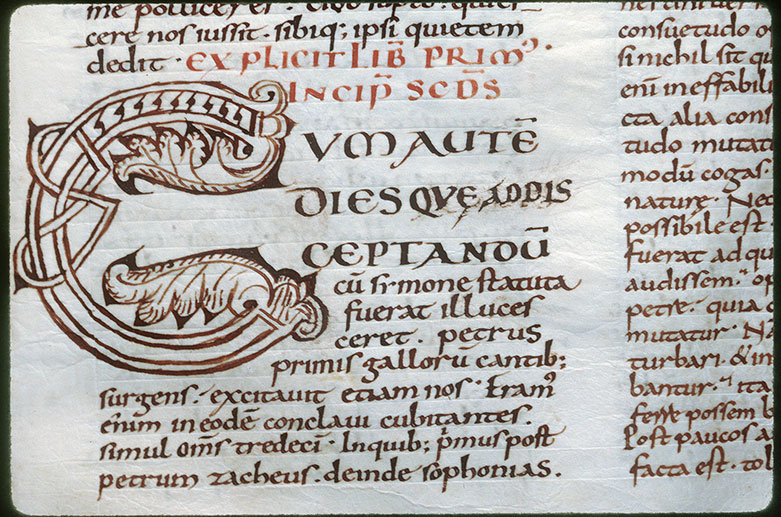 me polliceres . quies
cere nos iussit . sibiq; ipsi quietem
dedit . EXPLICIT LIB̄ PRIMꝰ.
INCIP̄ SCD̄S
CVM AUTĒ
DIES QUE AD DIS
CEPTANDŪ
cū sermone statuta
fuerat illuces
ceret . petrus
primis gallorū cantib;
surgens . excitavit etiam nos . Eramꝰ
enim in eodē conclavi cubitantes .
simul om̄s tredecī . In quib; p̄mus post
petrum zacheus . deinde sophonias .
consuetudo
si nichil sit
enī ineffabili
cta alia cons
tudo mutat
modū cogas .
naturę . Nec
possibile est .
fuerat ad qu
audissem .
petre . quia
mutatur .
turbari . & in
bantur . ita
fesse possem
Post paucos a
facta est .